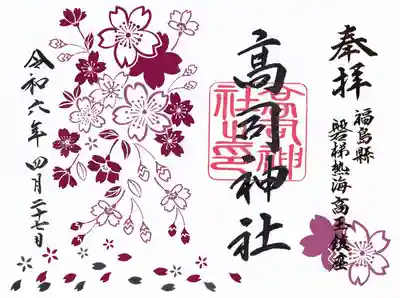 奉拝
福島縣
磐梯熱海 高玉鎮座
高司神社
高司神
社之印
令和六年 四月二十七日